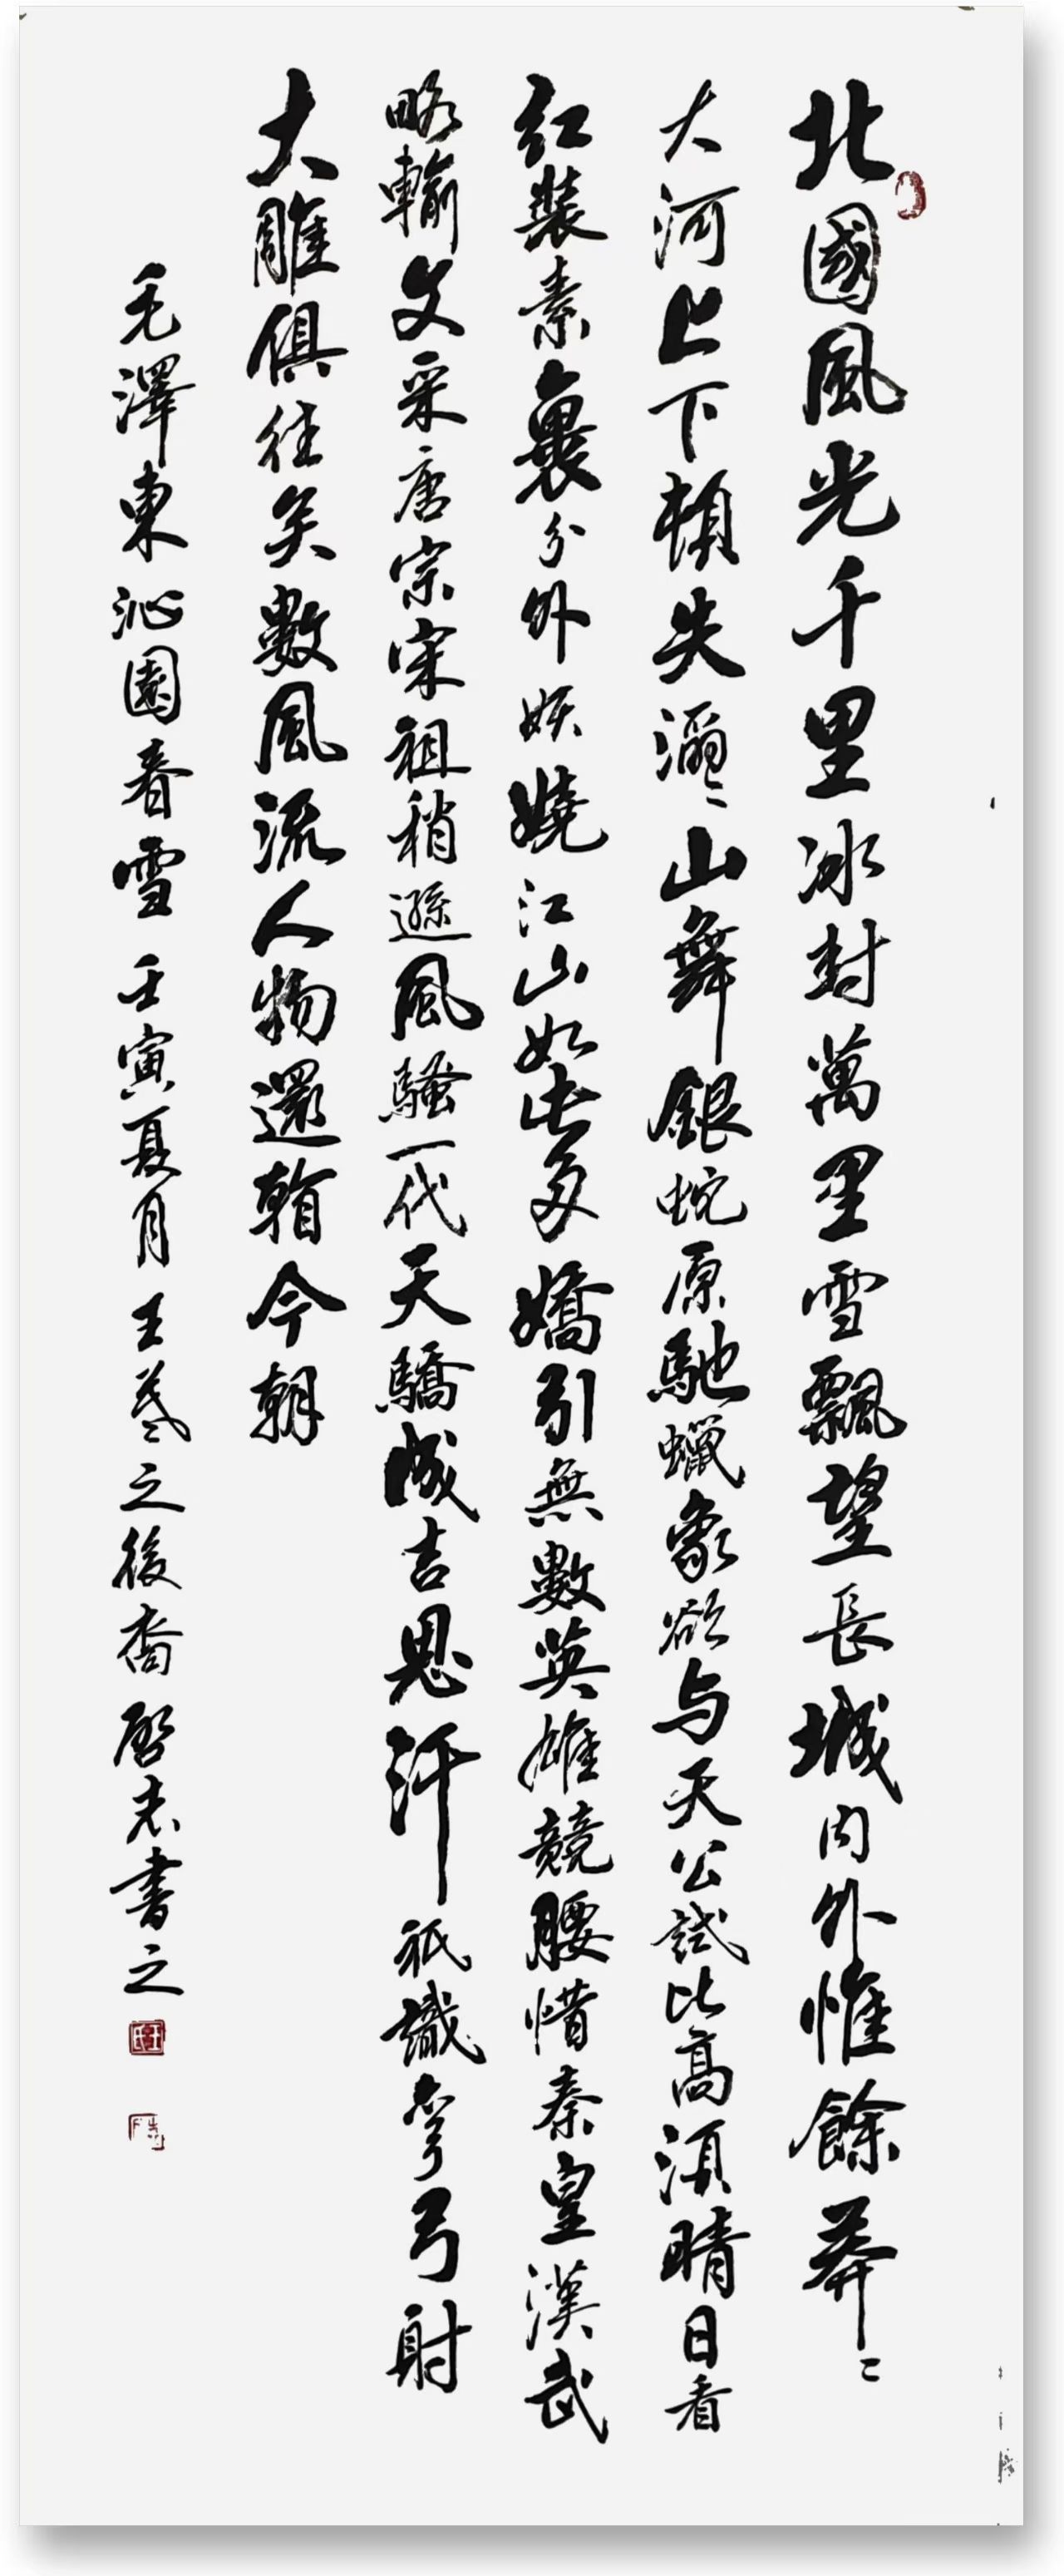 北國風光千里冰封萬里雪飄望長城内外惟餘莽〻
大河上下頓失滔〻山舞銀蛇原馳蠟象欲与天公試比高須晴日看
紅裝素裹分外妖嬈江山如此多嬌引無數英雄競腰惜秦皇漢武
略輸文采唐宗宋祖稍遜風騷一代天驕成吉思汗祇識彎弓射
大雕俱往矣數風流人物還看今朝
毛澤東沁園春雪 壬寅夏月 王羲之後裔啓志書之